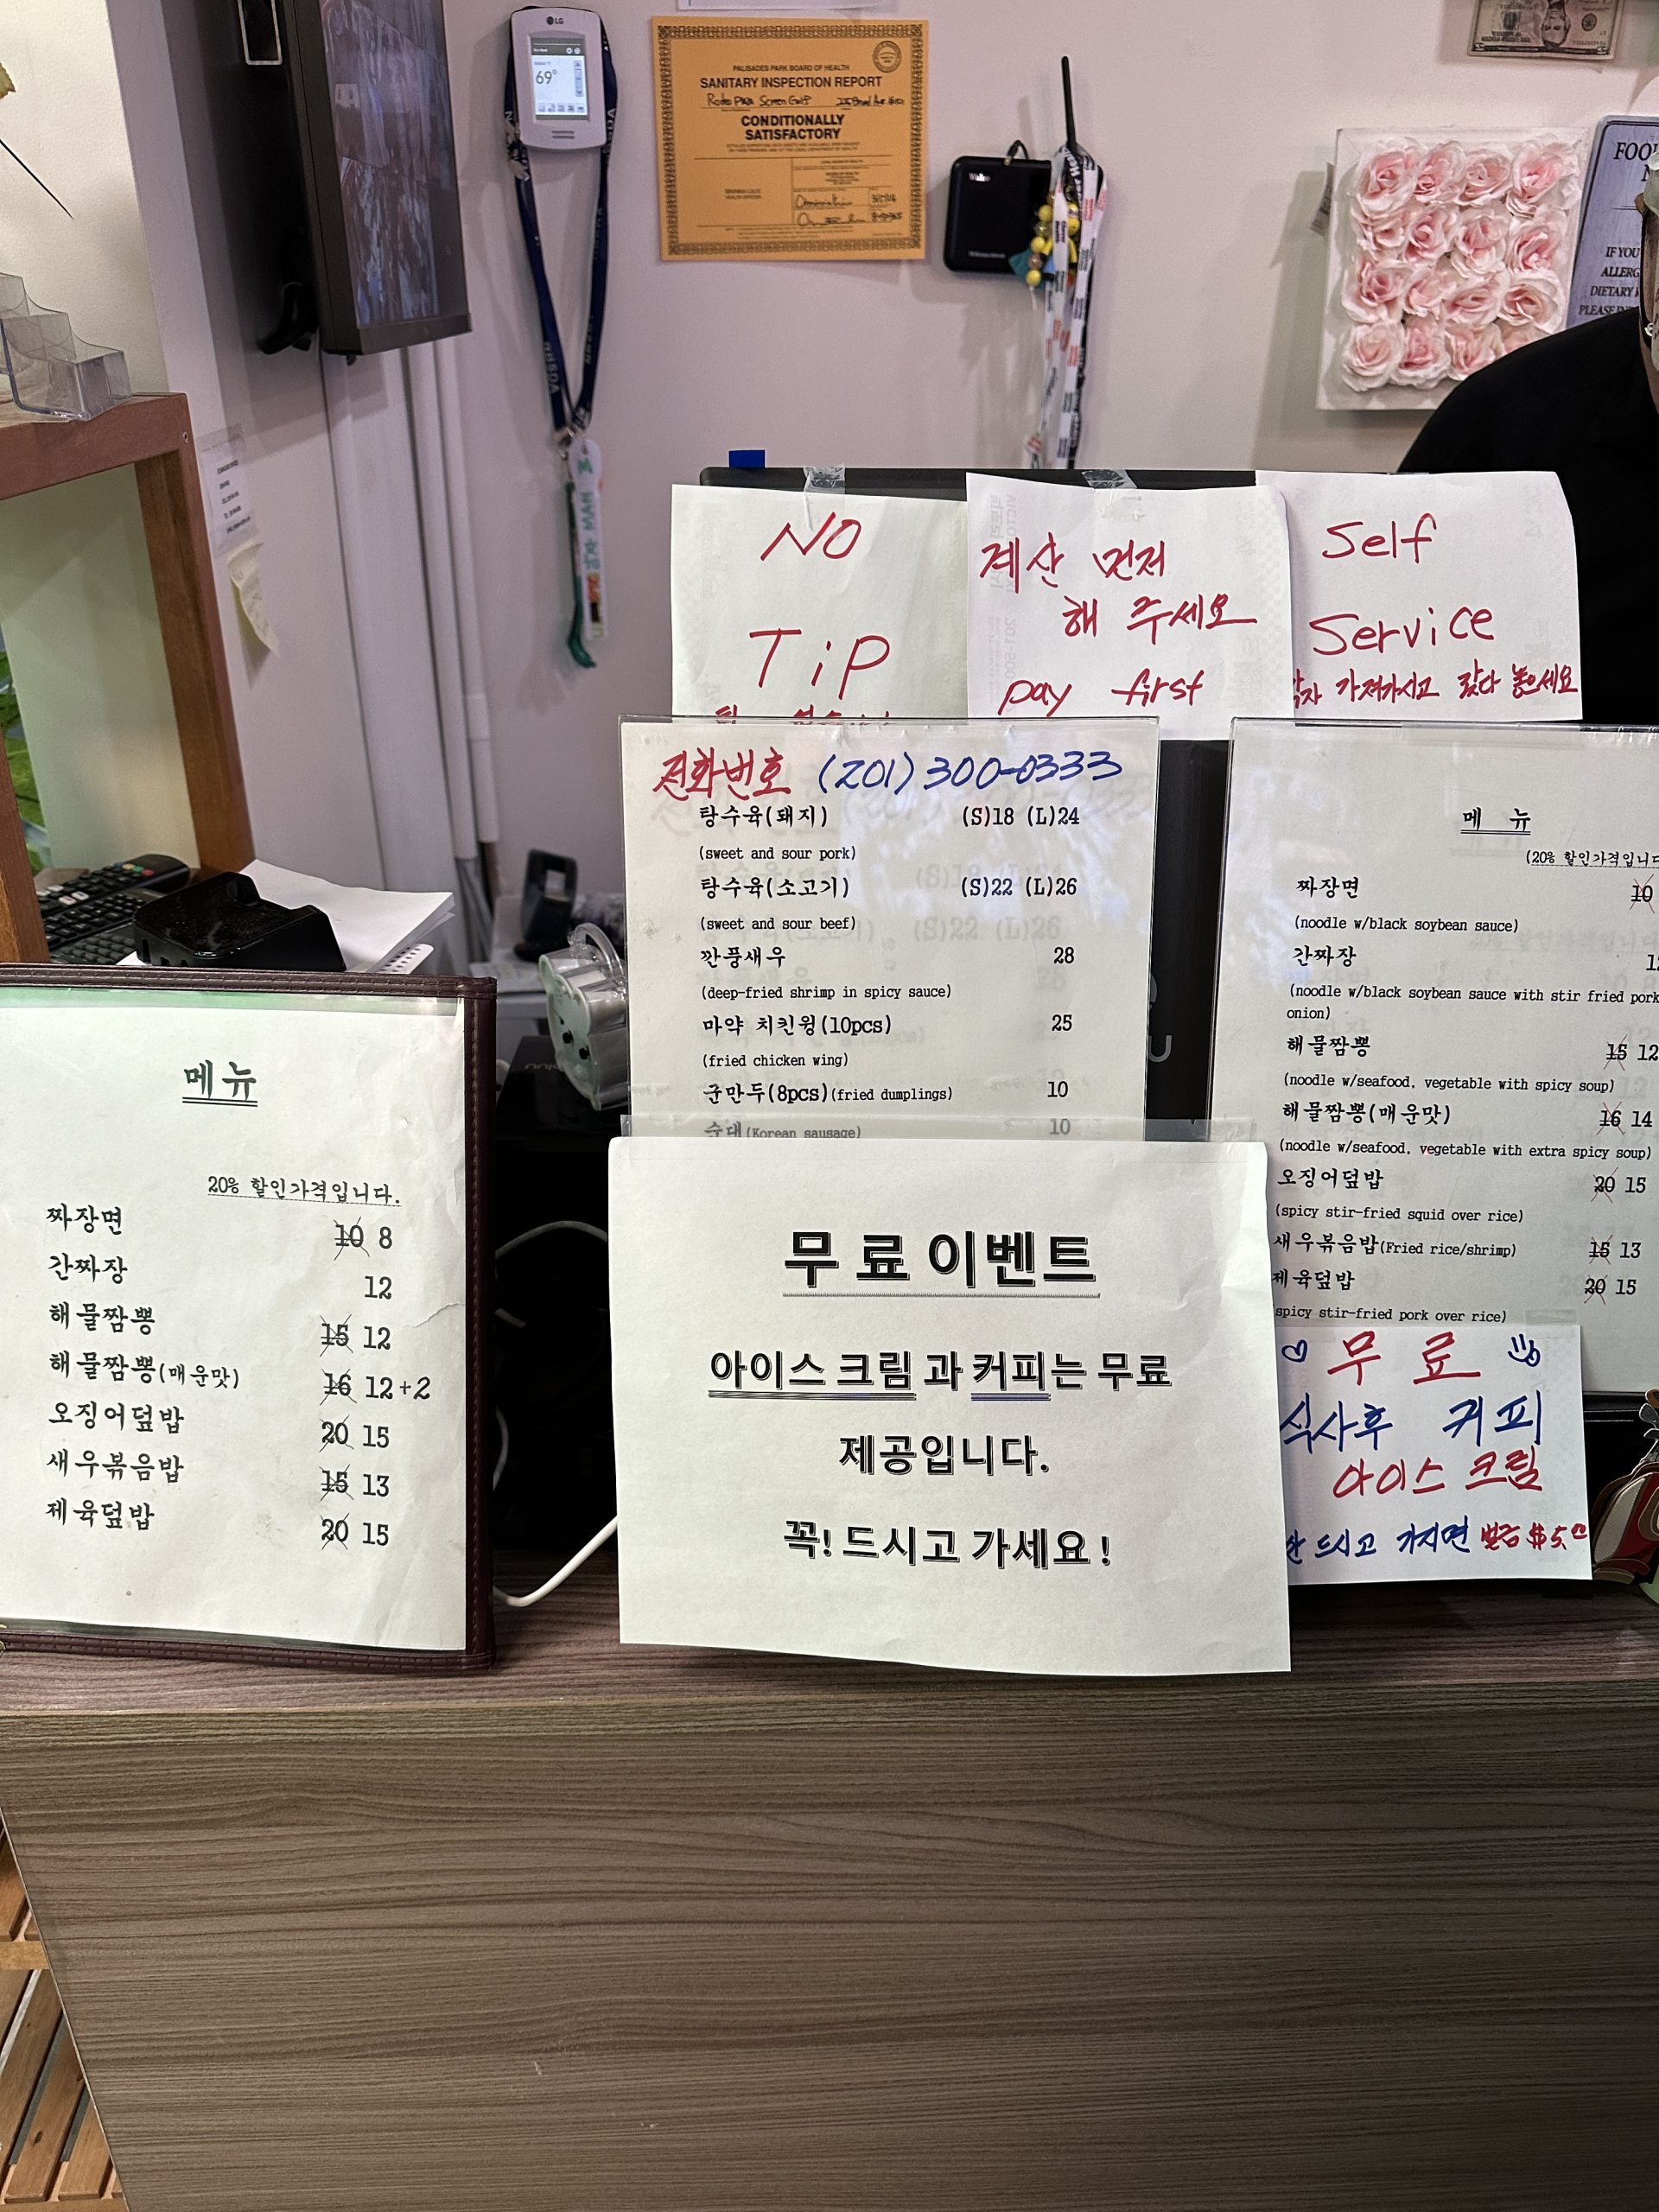 LG
69°
PALISADES PARK BOARD OF HEALTH
SANITARY INSPECTION REPORT
CONDITIONALLY
SATISFACTORY
FOO
IF YOU
ALLERG
DIETARY
NO
TiP
계산 먼저
해 주세요
pay first
Self
Service
가져가시고 갖다 놓으세요
전화번호 (201) 300-0333
탕수육(돼지) (S)18 (L)24
(sweet and sour pork)
탕수육(소고기) (S)22 (L)26
(sweet and sour beef)
깐풍새우 28
(deep-fried shrimp in spicy sauce)
마약 치킨윙(10pcs) 25
(fried chicken wing)
군만두(8pcs)(fried dumplings) 10
순대(Korean sausage) 10
메 뉴
(20% 할인가격입니다
짜장면 10
(noodle w/black soybean sauce)
간짜장
(noodle w/black soybean sauce with stir fried pork
onion)
해물짬뽕 15 12
(noodle w/seafood, vegetable with spicy soup)
해물짬뽕(매운맛) 16 14
(noodle w/seafood, vegetable with extra spicy soup)
오징어덮밥 20 15
(spicy stir-fried squid over rice)
새우볶음밥(Fried rice/shrimp) 15 13
제육덮밥 20 15
spicy stir-fried pork over rice)
메뉴
20% 할인가격입니다.
짜장면 10 8
간짜장 12
해물짬뽕 15 12
해물짬뽕(매운맛) 16 12+2
오징어덮밥 20 15
새우볶음밥 15 13
제육덮밥 20 15
무료 이벤트
아이스 크림 과 커피는 무료
제공입니다.
꼭! 드시고 가세요!
무료
식사후 커피
아이스 크림
안 드시고 가시면 벌금 $5.00